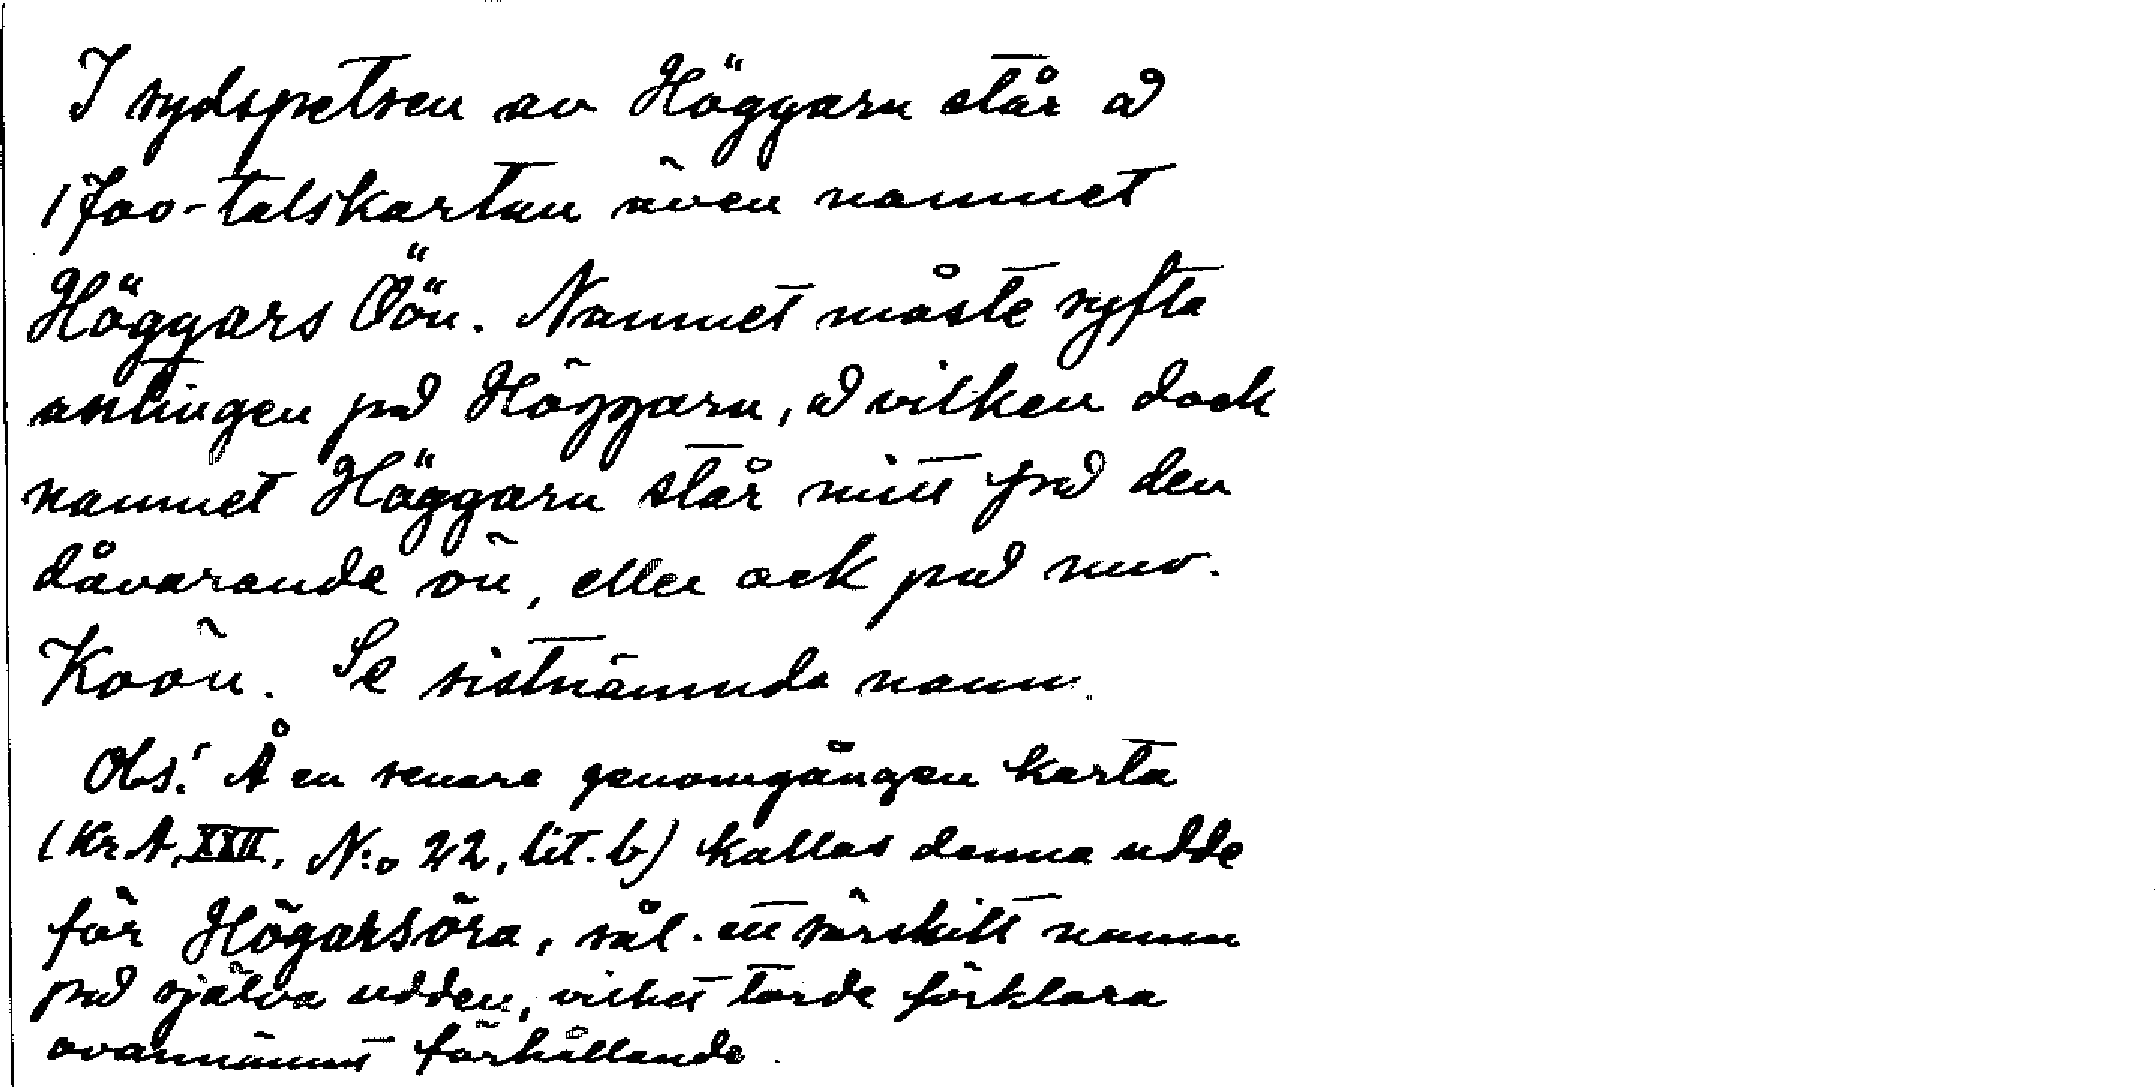 I sydspetsen av Höggarn står å
1700-talskartan även namnet
Höggars Öön. Namnet måste syfta
antingen på Höggarn, å vilken dock
namnet Höggarn står mitt på den
dåvarande ön, eller ock på nuv.
Koön. Se sistnämnda namn.
Obs! Å en senare genomgången karta
(Kr.A. XXII. N:o 22, lit. b) kallas denna udde
för Högarsöra, sål. ett särskilt namn
på själva udden, vilket torde förklara
ovannämnt förhållande.